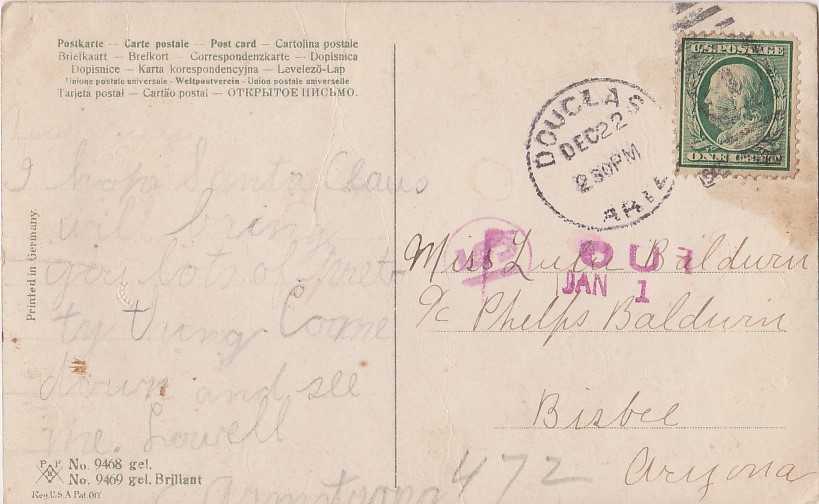 Postkarte — Carte postale — Post card — Cartolina postale
Briefkaart — Brefkort — Correspondenzkarte — Dopisnica
Dopisnice — Karta korespondencyjna — Levelező-Lap
Unione postale universale - Weltpostverein - Union postale universelle
Tarjeta postal — Cartão postal — ОТКРЫТОЕ ПИСЬМО.
I hope Santa Claus
will bring
you lot of pret
ty thing. Come
down and see
me. Lowell
Armstrong
Printed in Germany.
PFB
No. 9468 gel.
No. 9469 gel. Brillant
Reg. U.S.A Pat. Off
DOUGLAS
DEC 22
2 30PM
ARIZ
U.S. POSTAGE
ONE CENT
OUT
JAN 1
Miss Lulu Baldwin
c/o Phelps Baldwin
Bisbee
Aryona
472